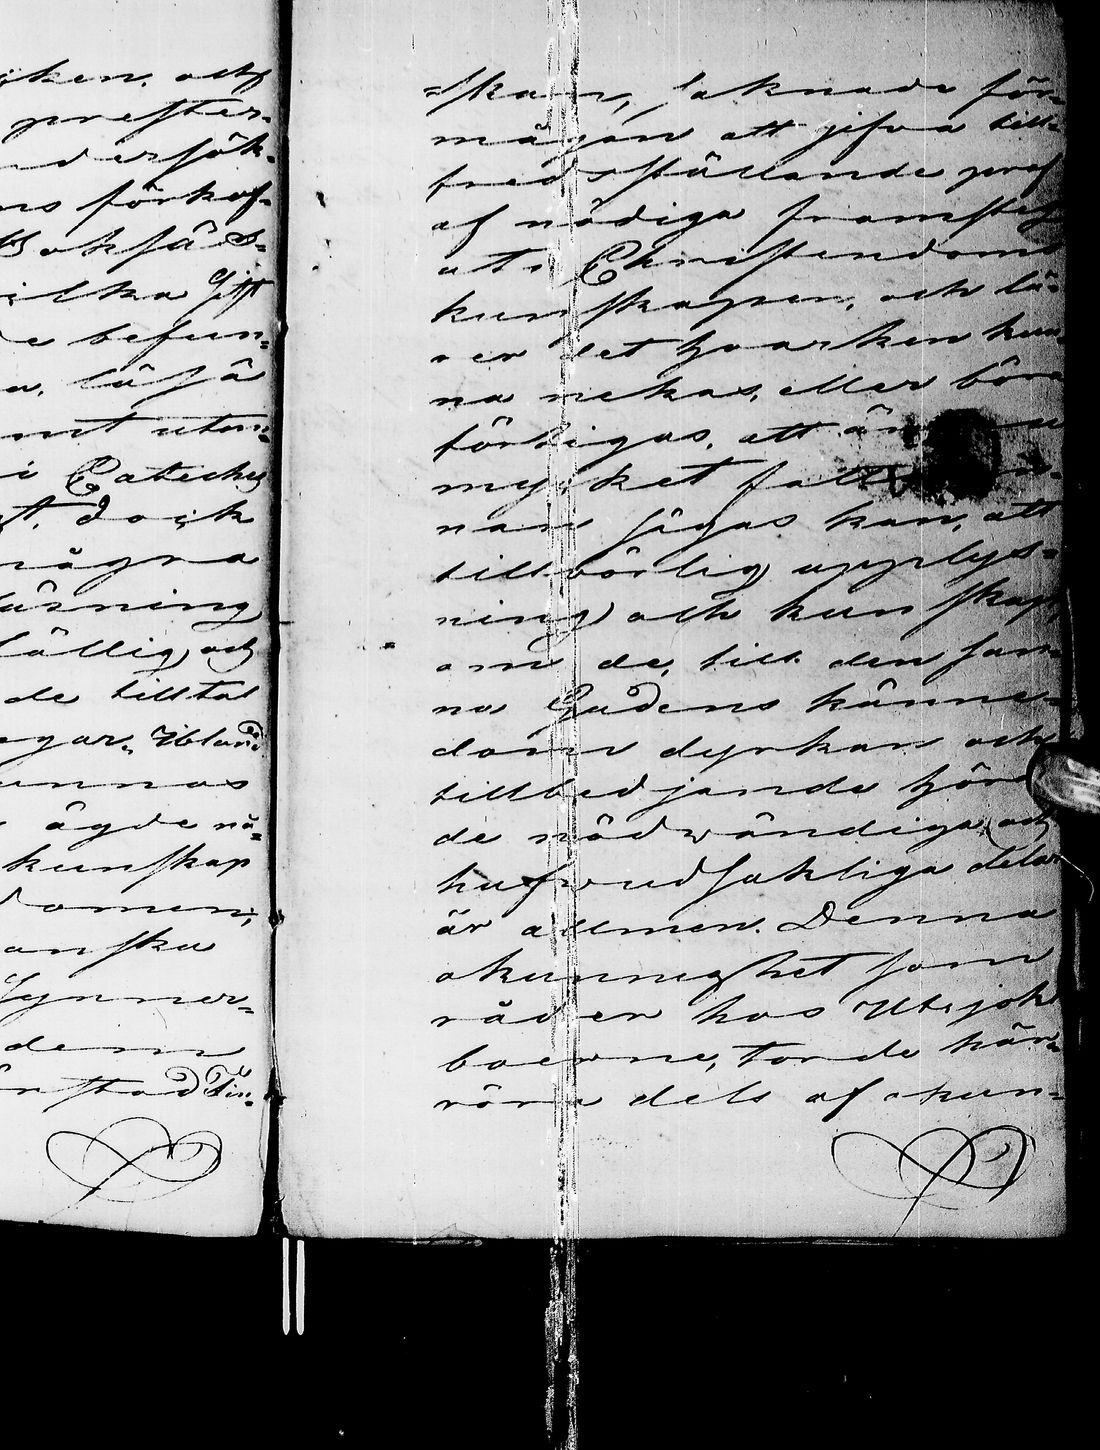 iken, och
prester-
ndersök-
ns förkof-
Boksäs-
ilka Gift
de befun-
a, läsa
mt utan-
i Cateches
t, dock
några
läsning
fällig, och
de tilltal
ngar. Ibland
unnos
ägde nå-
kunskap
domen,
anska
Synner-
dem
stad Fin-
-skan, saknade för-
mågan att gifva till-
fredsställande prof
af nödiga framsteg
ut i Christendoms
kunskapen, och lä-
rer det hvarken kun-
na nekas, eller böra
förtigas, att än
mycket fatt
nan sägas kan, att
tillbörlig upplys-
ning och kunskap,
om de, till den san-
na Gudens känne-
dom dyrkan och
tillbedjande höran
de nödvändiga och
hufvudsakliga delar
är allmen. Denna
okunnighet som
råder hos Utsjoki
boerne, torde här-
röra dels af okun-